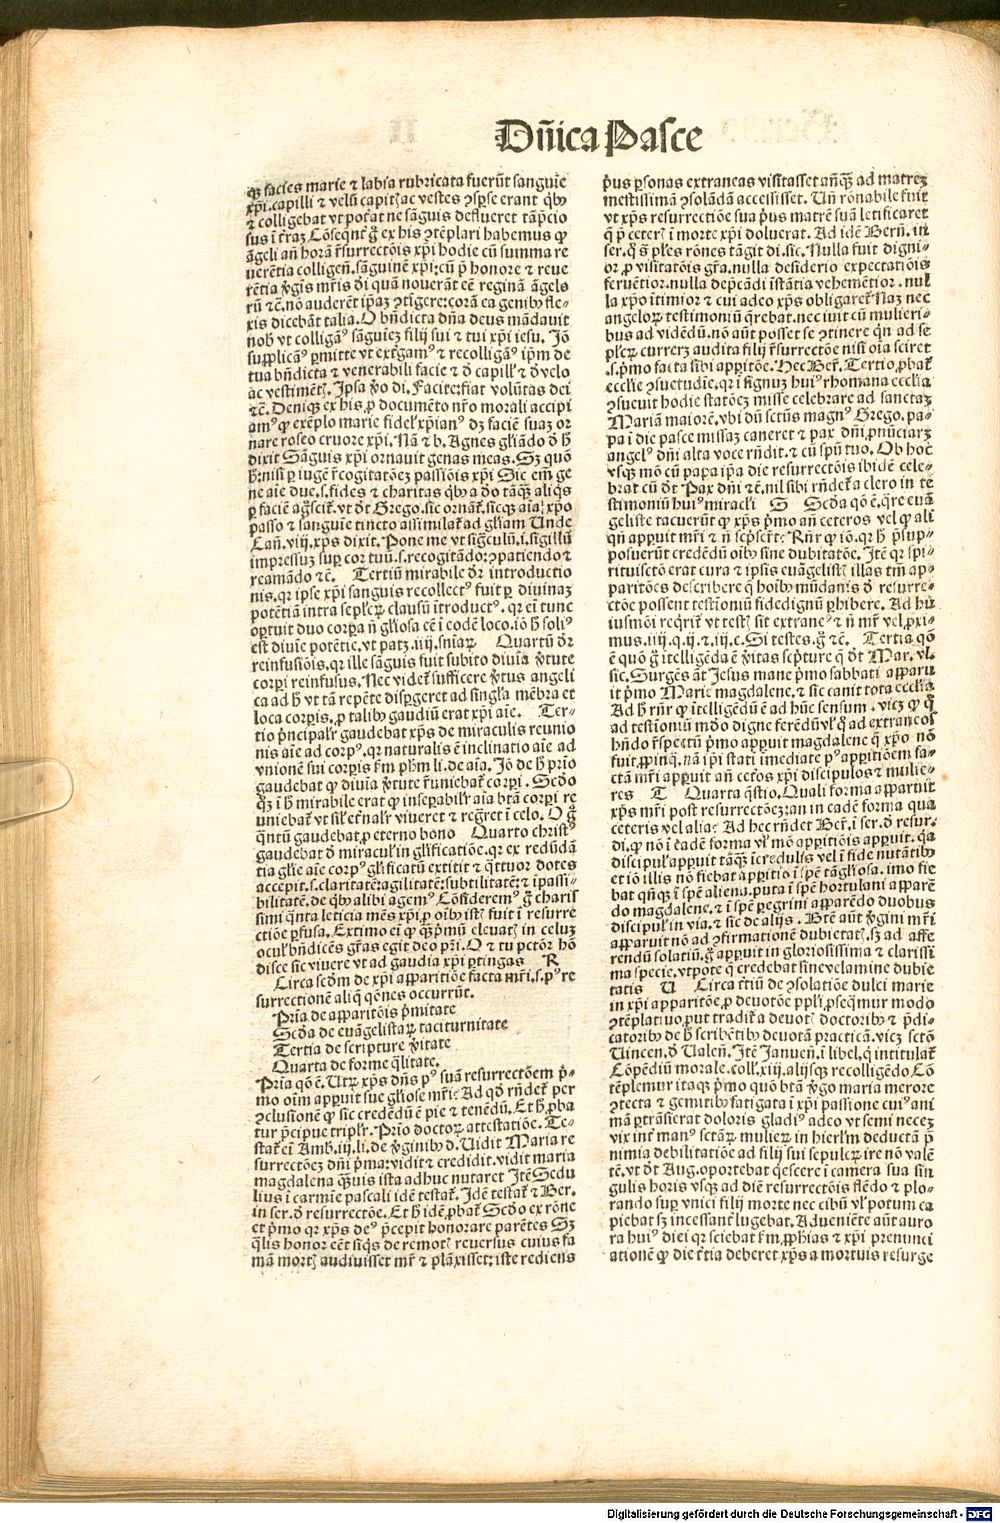 Dñica Pasce
qꝫ facies marie ⁊ labia rubricata fuerūt sanguīe
xp̄i. capilli ⁊ velū capitꝭ ac vestes ⁊sꝑse erant qͥbꝰ
⁊ colligebat vt poꝰat ne sāguis deflueret tāp̄cio
sus ī t̄raꝫ Cōseqn̄t̄ g̊ ex his ⁊tēplari habemus ꝙ
āgeli añ horā r̄surrectōis xp̄i hodie cū summa re
uerētia colligen̄. sāguinē xp̄i: cū p̄ honore ⁊ reue
rētia v̄gis mr̄is d̄i quā nouerāt eē reginā āgelo
rū ⁊c̄. nō auderēt ip̄aꝫ ⁊tīgere: corā ea genibꝰ fle⸗
xis dicebāt talia. O bn̄dicta dn̄a deus mādauit
nobꝭ vt colligāꝰ sāguieꝫ filij sui ⁊ tui xp̄i iesu. Iō
supplicāꝰ ꝑmitte vt ext̄gamꝰ ⁊ recolligāꝰ ip̄m de
tua bn̄dicta ⁊ venerabili facie ⁊ d̄ capillꝭ ⁊ d̄ velo
ac vestimētꝭ. Ipsa v̄o di. Facite: fiat volūtas dei
⁊c̄. Deniqꝫ ex his ꝓ documēto nr̄o morali accipi
amꝰ ꝙ exēplo marie fidelꝭ xp̄ianꝰ dꝫ faciē suaꝫ or
nare roseo cruore xp̄i. Nā ⁊ b. Agnes gl̄iādo d̄ h̄
dixit Sāguis xp̄i ornauit genas meas. Sꝫ quō
h̄: nisi ꝑ iugē r̄cogitatōeꝫ passiōis xp̄i Sic em̄ ge
ne aīe due. s. fides ⁊ charitas qͥbꝰ a d̄o tāqꝫ aliqͥs
ꝑ faciē ag̊scit̄. vt d̄t Grego. sic ornāt̄. sicqꝫ aīa xp̄o
passo ⁊ sanguīe tincto assimilat̄ ad gl̄iam Unde
Cañ. viij. xp̄s dixit. Pone me vt sigc̄lū. i. sigillū
impressuꝫ suꝑ cor tuū. s. recogitādo: ⁊patiendo ⁊
reamādo ⁊c̄. Tertiū mirabile d̄r introductio
nis. qꝛ ipse xp̄i sanguis recollectꝰ fuit ꝑ diuinaꝫ
potētiā intra sepl̄cꝝ clausū ītroductꝰ. qꝛ eī tunc
oꝑtuit duo corꝑa ñ gl̄iosa eē ī eodē loco. iō h̄ soliꝰ
est diuīe potētie. vt patꝫ. iiij. sn̄iaꝝ Quartū d̄r
reinfusiōis. qꝛ ille sāguis fuit subito diuīa v̄tute
corꝑi reinfusus. Nec videt̄ sufficere v̄tus angeli
ca ad h̄ vt tā repēte disꝑgeret ad singl̄a mēbra et
loca corꝑis. ꝓ talibꝰ gaudiū erat xp̄i aīe. Ter⸗
tio p̄ncipalꝭr gaudebat xp̄s de miraculis reunio
nis aīe ad corpꝰ. qꝛ naturalis ē inclinatio aīe ad
vnionē sui corꝑis ẜm ph̄m li. de aīa. Iō de h̄ prīo
gaudebat ꝙ diuīa v̄tute r̄uniebat̄ corꝑi. Scd̄o
qꝫ ī h̄ mirabile erat ꝙ inseꝑabilꝭr aīa btā corꝑi re
uniebat̄ vt silꝭ et̄nalꝭr viueret ⁊ reg̊ret ī celo. O g̊
q̄ntū gaudebat ꝓ eterno bono Quarto christꝰ
gaudebat d̄ miraculꝭ in gl̄ificatiōe. qꝛ ex redūdā
tia gl̄ie aīe corpꝰ gl̄ificatū extitit ⁊ q̄ttuor dotes
accepit. s. claritatē: agilitatē: subtilitatē: ⁊ ipassi⸗
bilitatē. de qͥbꝰ alibi agemꝰ Cōsideremꝰ g̊ charis
simi q̄nta leticia mēs xp̄i ꝓ oībꝰ istꝭ fuit ī resurre
ctiōe ꝑfusa. Extimo ei ꝙ qꝫp̄mū eleuatꝭ in celuꝫ
oculꝭ bn̄dicēs gr̄as egit deo pr̄i. O ⁊ tu pctōr hō
disce sic viuere vt ad gaudia xp̄i ꝑtingas R
Circa scd̄m de xp̄i apparitiōe facta mr̄i. s. pꝰ re
surrectionē aliq̄ qōnes occurrūt.
Prīa de apparitōis p̄mitate
Scd̄a de euāgelistaꝝ taciturnitate
Tertia de scripture v̄itate
Quarta de forme q̄litate.
Prīa qō ē. Utꝝ xp̄s dn̄s pꝰ suā resurrectōem p̄⸗
mo oīm apꝑuit sue gl̄iose mr̄i: Ad qd̄ rn̄det̄ per
⁊clusionē ꝙ sic credēdū ē pie ⁊ tenēdū. Et h̄ ꝓba
tur p̄cipue triplꝭr. Prīo doctoꝝ attestatiōe. Te⸗
stat̄ ei Amb. iij. li. de v̄ginibꝰ d. Uidit Maria re
surrectōeꝫ dn̄i p̄ma: vidit ⁊ credidit. vidit maria
magdalena qͣuis ista adhuc nutaret Itē Sedu
lius ī carmīe pascali idē testat̄. Idē testat̄ ⁊ Ber.
in ser. d̄ resurrectōe. Et h̄ idē ꝓbat̄ Scd̄o ex rōne
et p̄mo qꝛ xp̄s deꝰ p̄cepit honorare parētes Sꝫ
q̄lis honor eēt siqͥs de remotꝭ reuersus cuius fa
mā mortꝭ audiuisset mr̄ ⁊ plāxisset: iste rediens
p̄us ꝑsonas extraneas visitasset añqꝫ ad matreꝫ
mestissimā ⁊solādā accessisset. Un̄ rōnabile fuit
vt xp̄s resurrectiōe sua p̄us matrē suā letificaret
q̄ p̄ ceterꝭ ī morte xp̄i doluerat. Ad idē Bern̄. in
ser. qͥs ples rōnes tāgit di. sic. Nulla fuit digni⸗
or ꝓ visitatōis gr̄a. nulla desiderio expectatiōis
feruētior. nulla dep̄cādi īstātia vehemētior. nul
la xp̄o ītimior ⁊ cui adeo xp̄s obligaret̄ Naꝫ nec
angeloꝝ testimoniū q̄rebat. nec iuit cū mulieri⸗
bus ad vidēdū. nō aūt posset se ⁊tinere qn̄ ad se
pl̄cꝝ curreret audita filij r̄surrectōe nisi oīa sciret
. s. p̄mo facta sibi apꝑitōe. Hec Ber̄. Tertio ꝓbat̄
ecclie ⁊suetudīe. qꝛ ī signuꝫ huiꝰ rhomana ecclia
⁊sueuit hodie statōeꝫ misse celebrare ad sanctaꝫ
Mariā maiorē. vbi dū sctūs magnꝰ Grego. pa⸗
pa ī die pasce missaꝫ caneret ⁊ pax dn̄i ꝓnūciaret
angelꝰ dn̄i alta voce rn̄dit. ⁊ cū spū tuo. Ob hoc
vsqꝫ mō cū papa ip̄a die resurrectōis ibidē cele⸗
brat cū d̄t Pax dn̄i ⁊c̄. nil sibi rn̄det̄ a clero in te
stimoniū huiꝰ miraclꝭi S Scd̄a qō ē. q̄re euā
geliste tacuerūt ꝙ xp̄s p̄mo añ ceteros vel ꝙ ali
qñ apꝑuit mr̄i ⁊ ñ scp̄sert̄: Rn̄r ꝙ iō. qꝛ h̄ p̄sup⸗
posuerūt credēdū oībꝰ sine dubitatōe. Itē qꝛ spi⸗
rituisctō erat cura ⁊ ipsis euāgelistꝭ illas tm̄ ap⸗
paritōes describere q̄ hoībꝰ mūdanis d̄ resurre⸗
ctōe possent testīoniū fidedignū ꝑhibere. Ad hu
iusmōi reqͥrit̄ vt testꝭ sit extraneꝰ ⁊ ñ mr̄ vel ꝓxi⸗
mus. iiij. q. ij. ⁊. iij. c. Si testes. g̊ ⁊c̄. Tertia qō
ē quō g̊ ītelligēda ē v̄itas scp̄ture q̄ d̄t Mar. vl̄.
sic. Surgēs aūt Iesus mane p̄mo sabbati apparu
it p̄mo Marie magdalene. ⁊ sic canit tota ecclia
Ad h̄ rn̄r ꝙ ītelligēdū ē ad hūc sensum. vicꝫ ꝙ q̄
ad testīoniū mōo digne ferēdū vl̄ qͣ ad extraneos
hn̄do r̄spectū p̄mo apꝑuit magdalene q̄ xp̄o nō
fuit ꝓpinq̄. nā ip̄i stati imediate pꝰ apꝑitiōem fa⸗
ctā mr̄i apꝑuit añ cet̄os xp̄i discipulos ⁊ mulie⸗
res T Quarta q̄stio. Quali forma apparuit
xp̄s mr̄i post resurrectōeꝫ: an in eadē forma qua
ceteris vel alia: Ad hec rn̄det Ber̄. ī ser. d̄ resur.
di. ꝙ nō ī eadē forma vl̄ mō apꝑitiōis apꝑuit. qͣ
discipulꝭ apꝑuit tāqꝫ īcredulis vel ī fide nutātibꝰ
et iō illis nō fiebat apꝑitio ī spē tā gl̄iosa. imo fie
bat qn̄qꝫ ī spē aliena. puta ī spē hortulani apparē
do magdalene. ⁊ ī spē ꝑegrini apparēdo duobus
discipulꝭ in via. ⁊ sic de alijs. Btē aūt v̄gini mr̄i
apparuit nō ad ⁊firmationē dubietatꝭ. sꝫ ad affe
rendū solatiū. g̊ apꝑuit in gloriosissima ⁊ clarissi
ma specie. vtpote q̄ credebat sine velamine dubie
tatis U Circa t̄tiū de ⁊solatiōe dulci marie
in xp̄i apparitōe. ꝓ deuotōe ppl̄i ꝓseqͥmur modo
⁊tēplatiuo. put tradit̄ a deuotꝭ doctoribꝰ ⁊ p̄di⸗
catoribꝰ de h̄ scribētibꝰ deuotā practicā. vicꝫ sctō
Uincen. d̄ Ualen̄. Itē Januen̄. ī libel. qͥ intitulat̄
Cōpēdiū morale. coll. xiij. alijsqꝫ recolligēdo. Cō
tēplemur itaqꝫ p̄mo quō btā v̄go maria merore
⁊tecta ⁊ gemitibꝰ fatigata ī xp̄i passione cuiꝰ ani
mā ꝑtrāsierat doloris gladiꝰ adeo vt semi neceꝫ
vix int̄ manꝰ sctāꝝ mulieꝝ in hierlꝭm deductā p̄
nimia debilitatiōe ad filij sui sepulcꝝ ire nō valē
tē. vt d̄t Aug. oportebat q̄escere ī camera sua sin
gulis horis vsqꝫ ad diē resurrectōis flēdo ⁊ plo⸗
rando suꝑ vnici filij morte nec cibū vl̄ potum ca
piebat sꝫ incessant̄ lugebat. Adueniēte aūt auro
ra huiꝰ diei qꝛ sciebat ẜm ꝓphias ⁊ xp̄i prenunci
ationē ꝙ die t̄tia deberet xp̄s a mortuis resurge
Digitalisierung gefördert durch die Deutsche Forschungsgemeinschaft - DFG